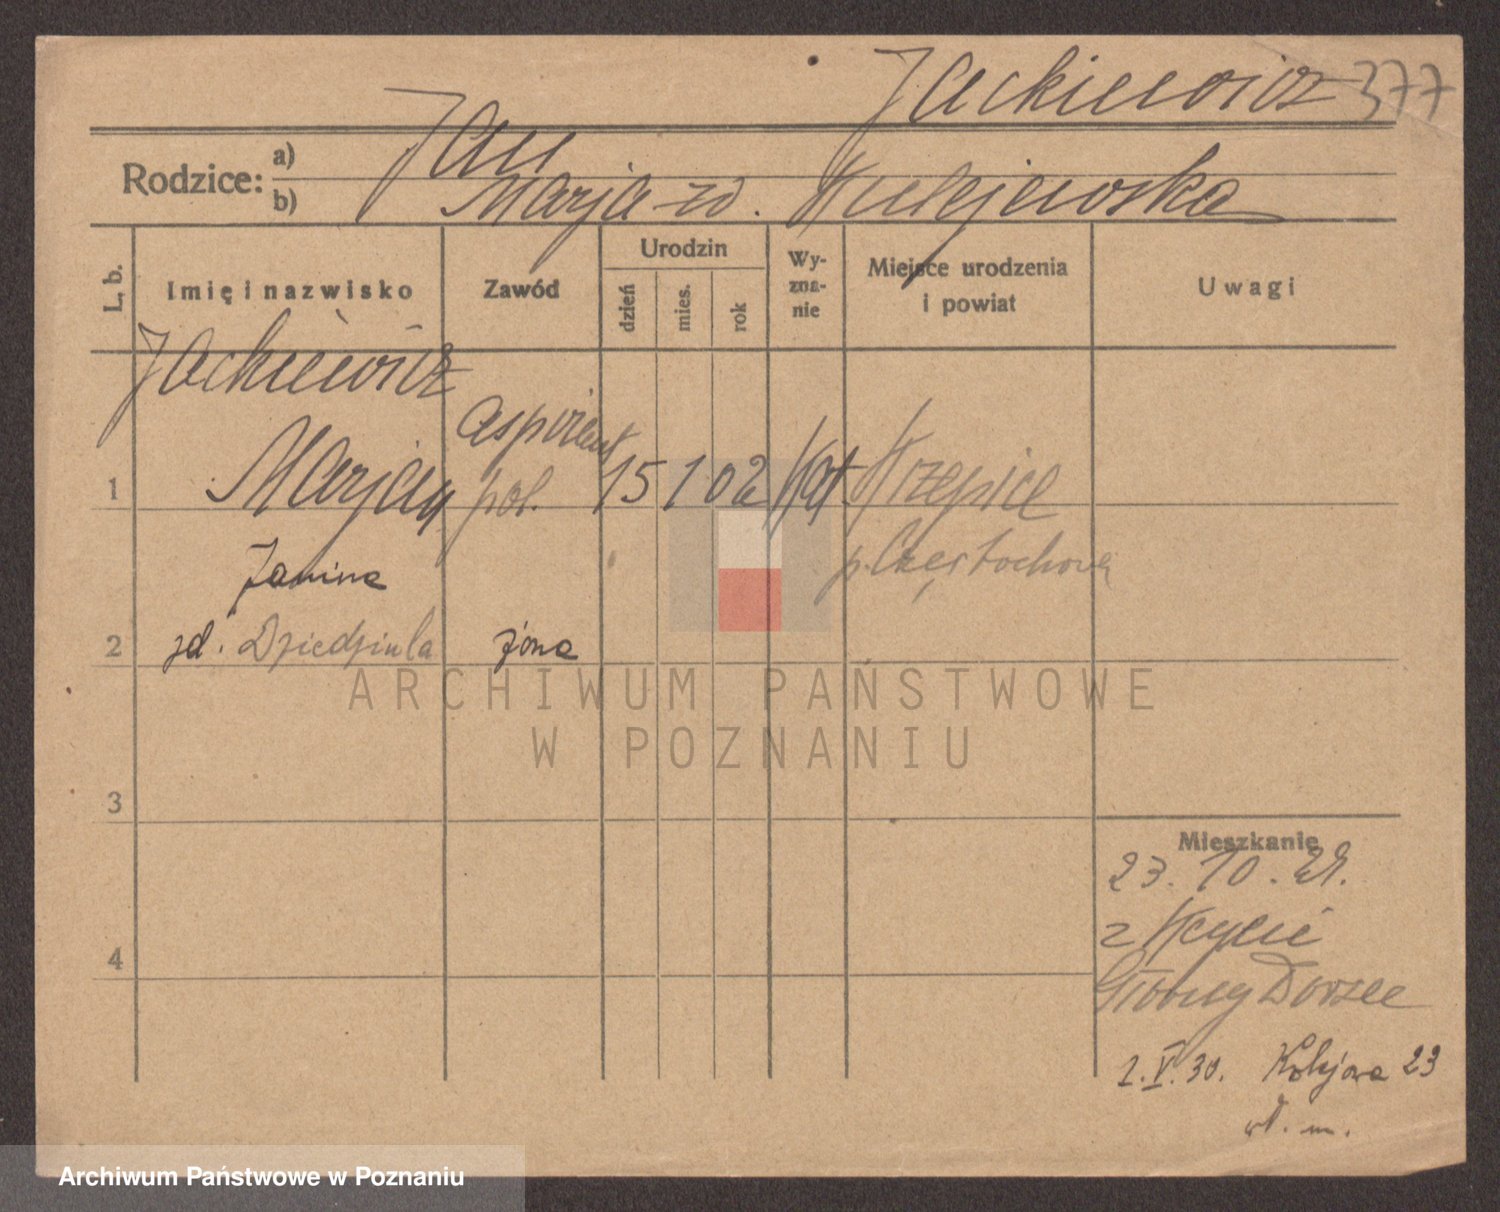 Jackiewicz 377
Rodzice: a) Jan
b) Marja zd. Kulejewska
L. b. Imię i nazwisko Zawód Urodzin dzień mies. rok Wy-zna-nie Miejsce urodzenia i powiat Uwagi
Jackiewicz
aspirant
1 Marjan pol. 15 1 02 Kat Krzepice
p. Częstochowa
Janina
2 zd. Dziedziula żona
3
4
Mieszkanie
23. 10. 29.
z Kcynie
1. V. 30. Kolejowa 23
wł. m.
ARCHIWUM PAŃSTWOWE
W POZNANIU
Archiwum Państwowe w Poznaniu